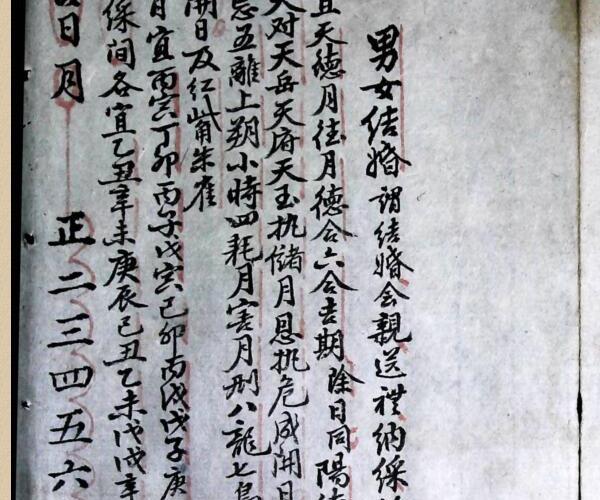 男女结婚 謂结婚会親送禮納綵
宜天德月德月德合六合吉期除日同陽德
天对天岳天府天玉执儲月恩执危成開日
忌五離上朔小時四耗月害月刑八龍七鳥
開日及红嘴朱雀
日宜丙寅丁卯丙子戊寅己卯丙戌戊子庚
綵间各宜乙丑辛未庚辰己丑乙未戊戌辛
日月 正二三四五六